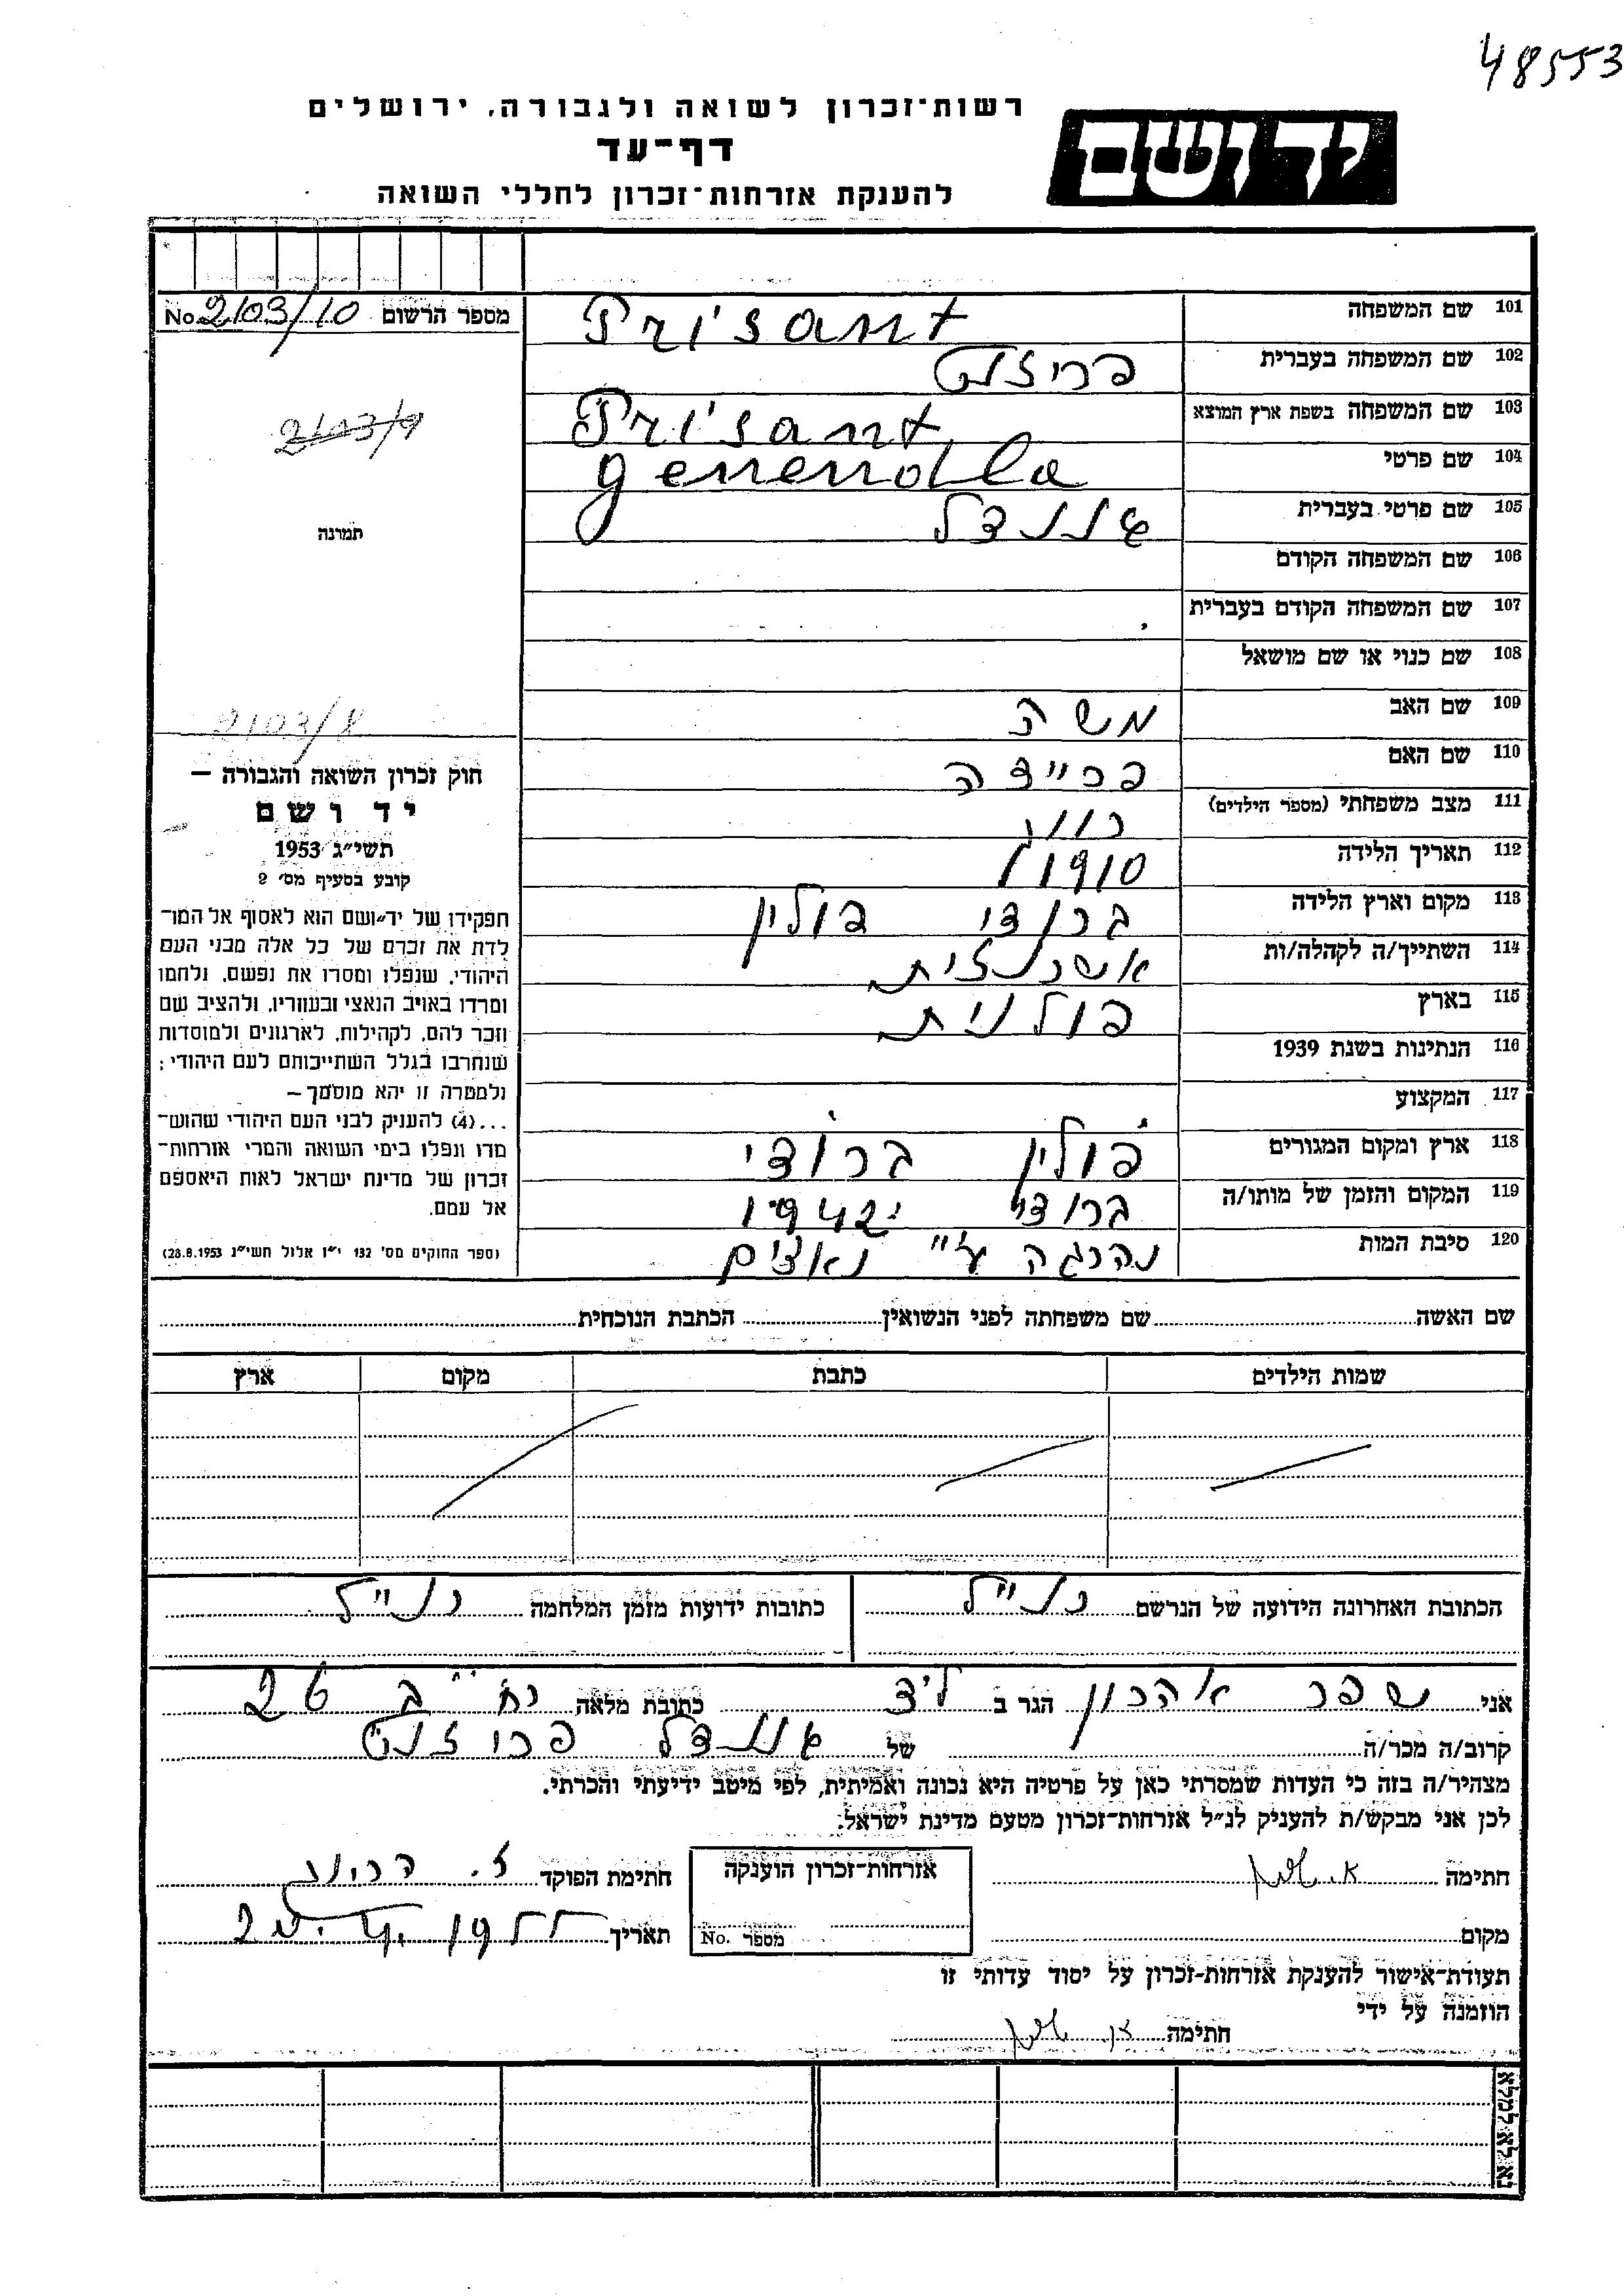 48553
רשות־זכרון לשואה ולגבורה, ירושלים
יד ושם
דף־עד
להענקת אזרחות־זכרון לחללי השואה
מספר הרשום No. 2103/10
2103/9
תמונה
2103/8
חוק זכרון השואה והגבורה —
יד ושם
תשי״ג 1953
קובע בסעיף מס׳ 2
תפקידו של יד־ושם הוא לאסוף אל המו־
לדת את זכרם של כל אלה מבני העם
היהודי, שנפלו ומסרו את נפשם, נלחמו
ומרדו באויב הנאצי ובעוזריו, ולהציב שם
וזכר להם, לקהילות, לארגונים ולמוסדות
שנחרבו בגלל השתייכותם לעם היהודי;
ולמטרה זו יהא מוסמך —
...(4) להעניק לבני העם היהודי שהוש־
מדו ונפלו בימי השואה והמרי אזרחות־
זכרון של מדינת ישראל לאות היאספם
אל עמם.
(ספר החוקים מס׳ 132 י״ז אלול תשי״ג 28.8.1953)
101 שם המשפחה Prisant
102 שם המשפחה בעברית פריזנט
103 שם המשפחה בשפת ארץ המוצא Prisant
104 שם פרטי
105 שם פרטי בעברית
106 שם המשפחה הקודם
107 שם המשפחה הקודם בעברית
108 שם כנוי או שם מושאל
109 שם האב משה
110 שם האם פריידה
111 מצב משפחתי (מספר הילדים) רווק
112 תאריך הלידה 1910
113 מקום וארץ הלידה ברודי פולין
114 השתייך/ה לקהלה/ות אשכנזית
115 בארץ פולנית
116 הנתינות בשנת 1939
117 המקצוע
118 ארץ ומקום המגורים פולין ברודי
119 המקום והזמן של מותו/ה ברודי 1942
120 סיבת המות נהרגה ע״י נאצים
שם האשה שם משפחתה לפני הנשואין הכתבת הנוכחית
שמות הילדים כתבת מקום ארץ
הכתובת האחרונה הידועה של הנרשם כנ״ל כתובות ידועות מזמן המלחמה כנ״ל
אני שפר אהרון הגר ב כתובת מלאה 26
קרוב/ה מכר/ה של פריזנט
מצהיר/ה בזה כי העדות שמסרתי כאן על פרטיה היא נכונה ואמיתית, לפי מיטב ידיעתי והכרתי.
לכן אני מבקש/ת להעניק לנ״ל אזרחות־זכרון מטעם מדינת ישראל.
חתימה אזרחות־זכרון הוענקה חתימת הפוקד
מקום מספר No. תאריך
תעודת־אישור להענקת אזרחות־זכרון על יסוד עדותי זו
הוזמנה על ידי
חתימה
נא לא למלא